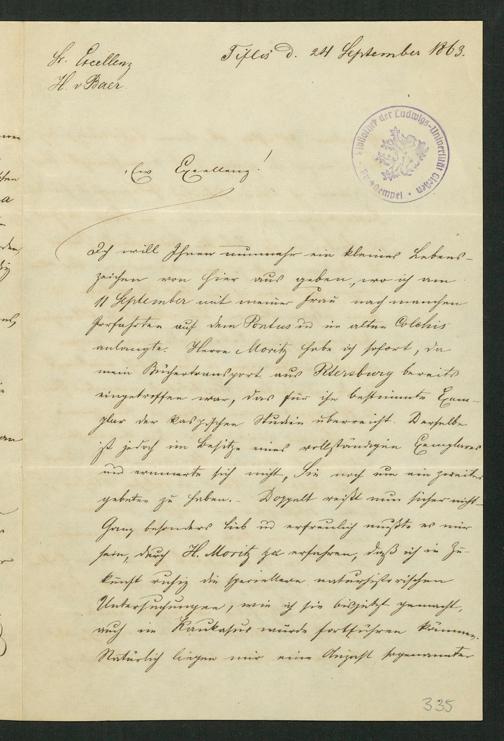 Sr. Excellenz
H. v Baer
Tiflis d. 24 September 1863.
Bibliothek der Ludwigs-Universität Giessen
Ew Excellenz!
Ich will Ihnen nunmehr ein kleines Lebens-
zeichen von hier aus geben, wo ich am
11 September mit meiner Frau nach manchen
Irrfahrten auf dem Pontus u im alten Colchis
anlangte. Herrn Moritz habe ich sofort, da
mein Büchertransport aus Petersburg bereits
eingetroffen war, das für ihn bestimmte Exem-
plar der kaspischen Studien überreicht. Derselbe
ist jedoch im Besitze eines vollständigen Exemplares
und erinnerte sich nicht, Sie noch um ein zweites
gebeten zu haben. - Doppelt reißt nun sicher nicht.
Ganz besonders lieb u erfreulich mußte es mir
sein, durch H. Moritz zu erfahren, daß ich in Zu-
kunft ruhig die speciellern naturhistorischen
Untersuchungen, wie ich sie bisjetzt gemacht,
auch im Kaukasus würde fortführen können.
Natürlich liegen mir eine Anzahl sogenannter
335